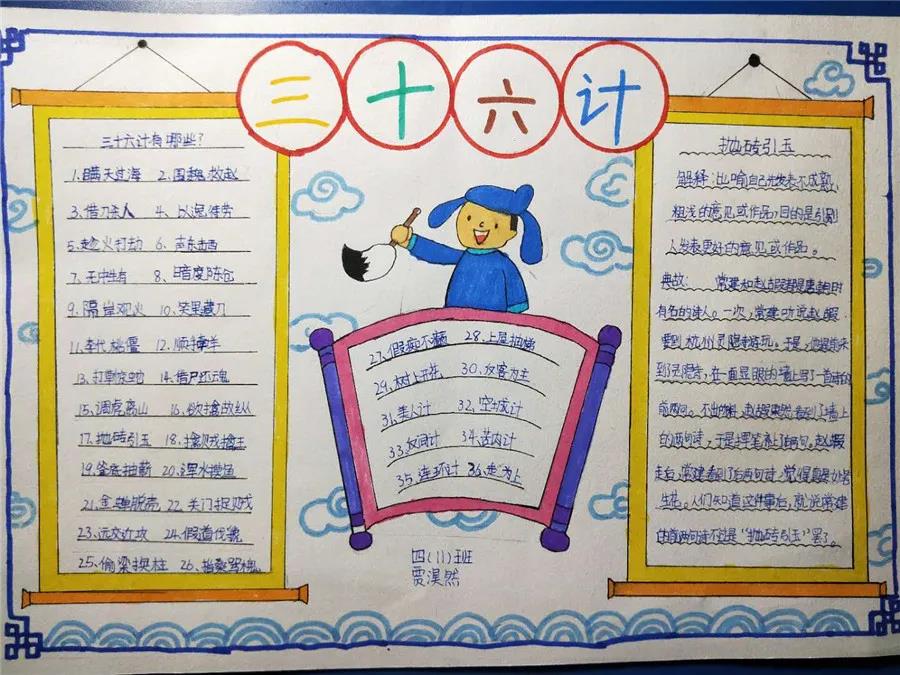 三十六计
三十六计有哪些?
1.瞒天过海 2.围魏救赵
3.借刀杀人 4.以逸待劳
5.趁火打劫 6.声东击西
7.无中生有 8.暗度陈仓
9.隔岸观火 10.笑里藏刀
11.李代桃僵 12.顺手牵羊
13.打草惊蛇 14.借尸还魂
15.调虎离山 16.欲擒故纵
17.抛砖引玉 18.擒贼擒王
19.釜底抽薪 20.浑水摸鱼
21.金蝉脱壳 22.关门捉贼
23.远交近攻 24.假道伐虢
25.偷梁换柱 26.指桑骂槐
27.假痴不癫 28.上屋抽梯
29.树上开花 30.反客为主
31.美人计 32.空城计
33.反间计 34.苦肉计
35.连环计 36.走为上
四(11)班
贾淏然
抛砖引玉
解释:比喻自己先发表不成熟、
粗浅的意见或作品,目的是引别
人发表更好的意见或作品。
典故: 常建和赵嘏都是唐朝时
有名的诗人。一次,常建听说赵嘏
要到杭州灵隐寺游玩。于是,他提前来
到了灵隐寺,在一面显眼的墙上写了一首诗的
前两句。不出所料,赵嘏果然看到了墙上
的两句诗,于是挥笔补上后两句,赵嘏
走后,常建看到了后两句诗,觉得真是妙笔
生花。人们知道这件事后,就说常建
的前两句诗不过是“抛砖引玉”罢了。